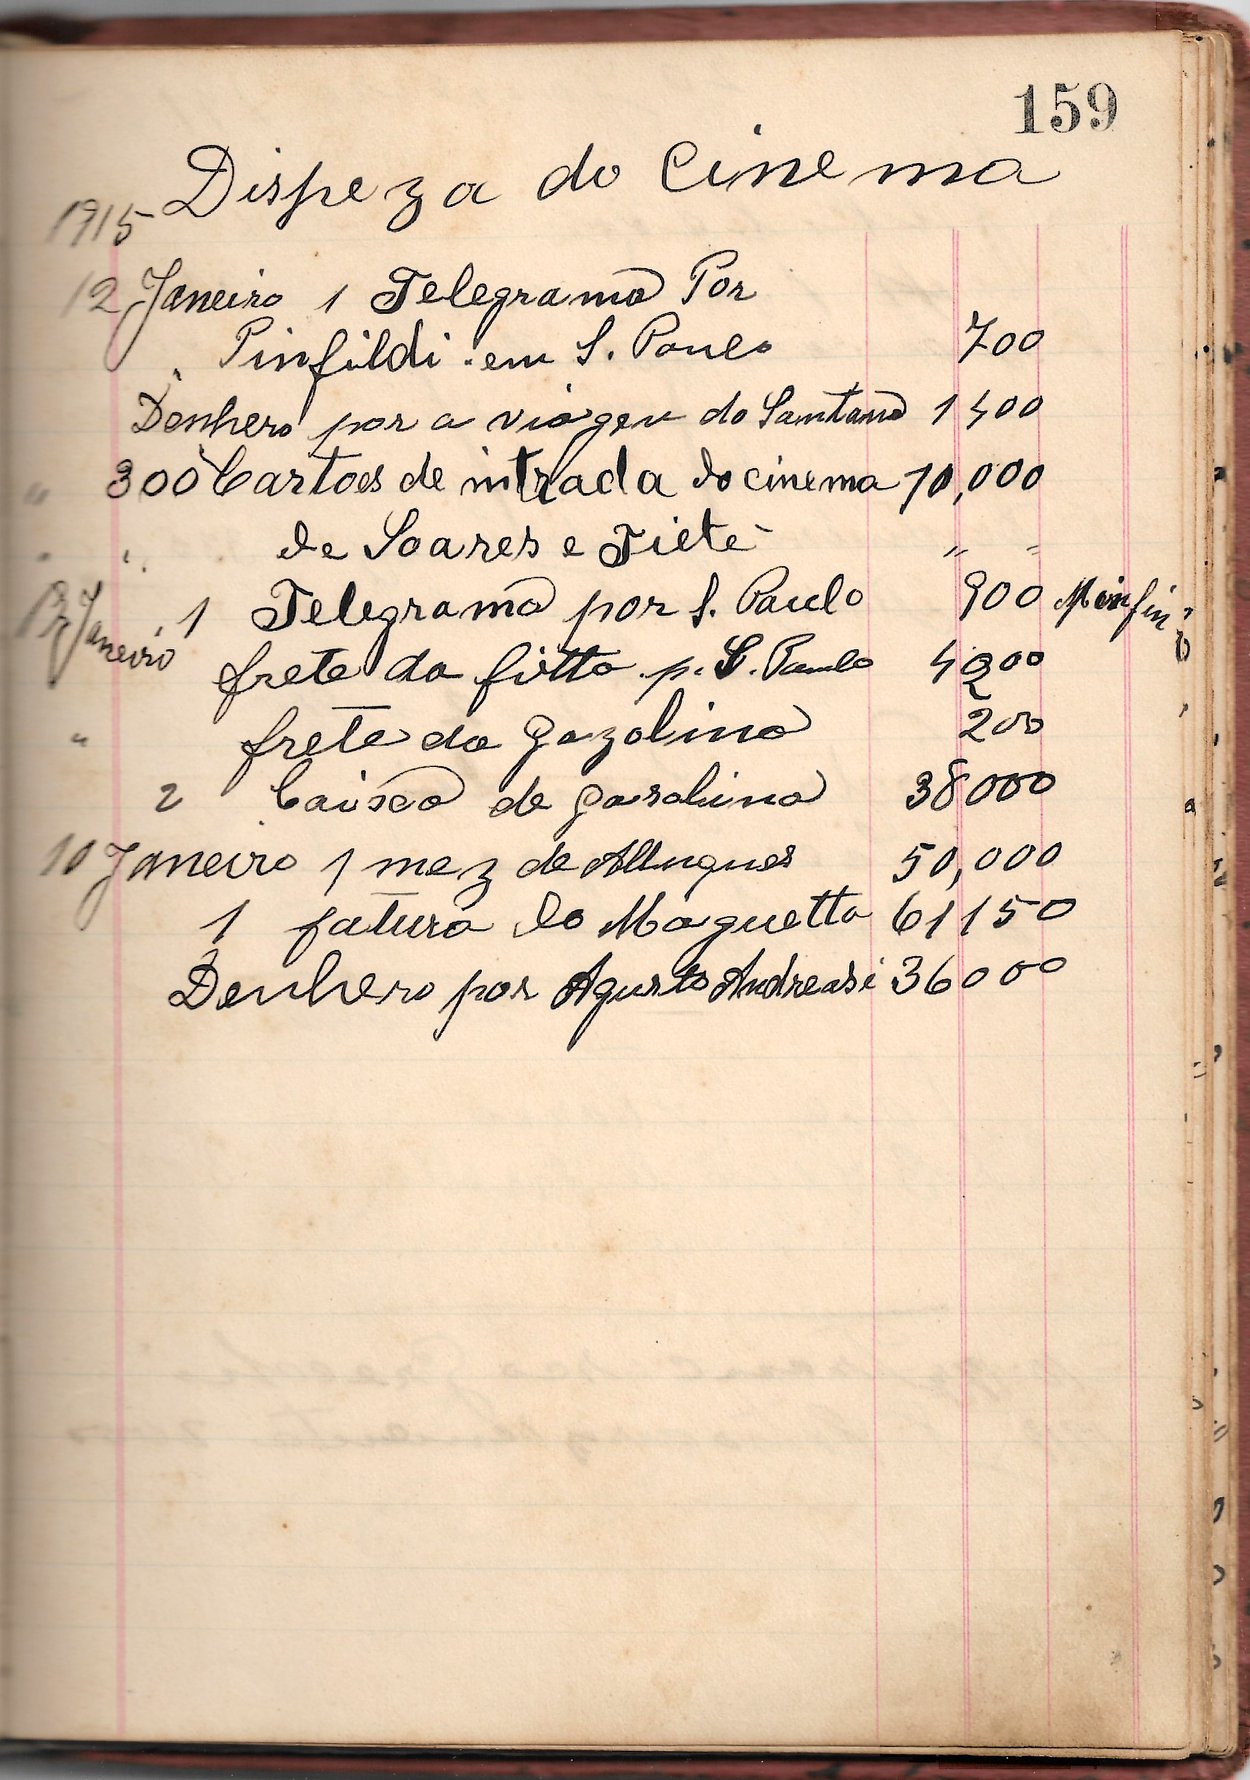 159
Dispeza do Cinema
1915
12 Janeiro 1 Telegrama Por
Pinfildi em S. Paulo 700
Denhero por a viagem do Santana 1400
" 300 Cartoes de intrada do cinema 10,000
" " de Soares e Tiete " "
Janeiro 1 Telegrama por S. Paulo 900
frete da fitta p. S. Paulo
" frete da gazolina 200
2 Caisca de gasolina 38000
10 Janeiro 1 mez de Allugues 50,000
1 fatura do Maguetta 61150
Denhero por Agusto Andreasi 36000